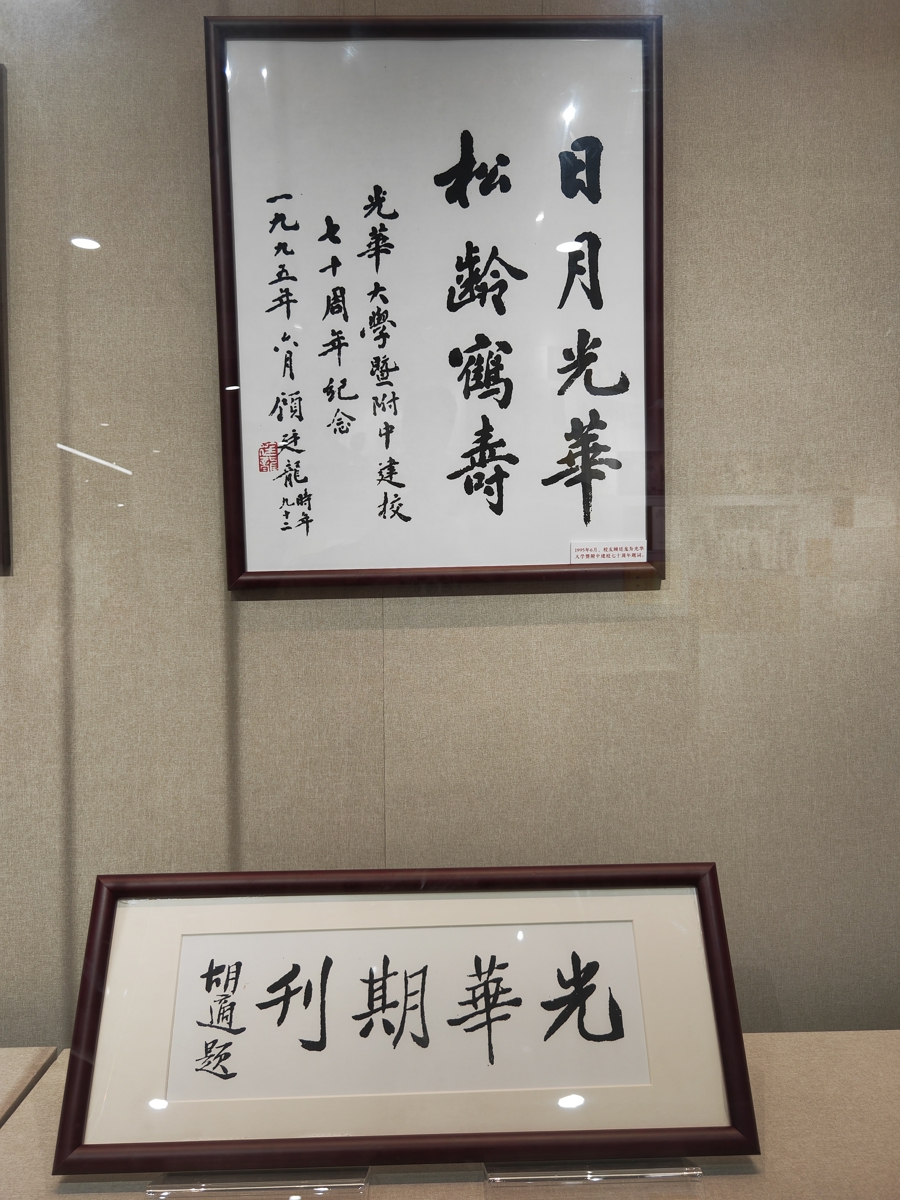 日月光華
松齡鶴壽
光華大學暨附中建校
七十周年紀念
一九九五年六月顧廷龍時年九十二
1995年6月，校友顾廷龙为光华
大学暨附中建校七十周年题词。
光華期刊
胡適題